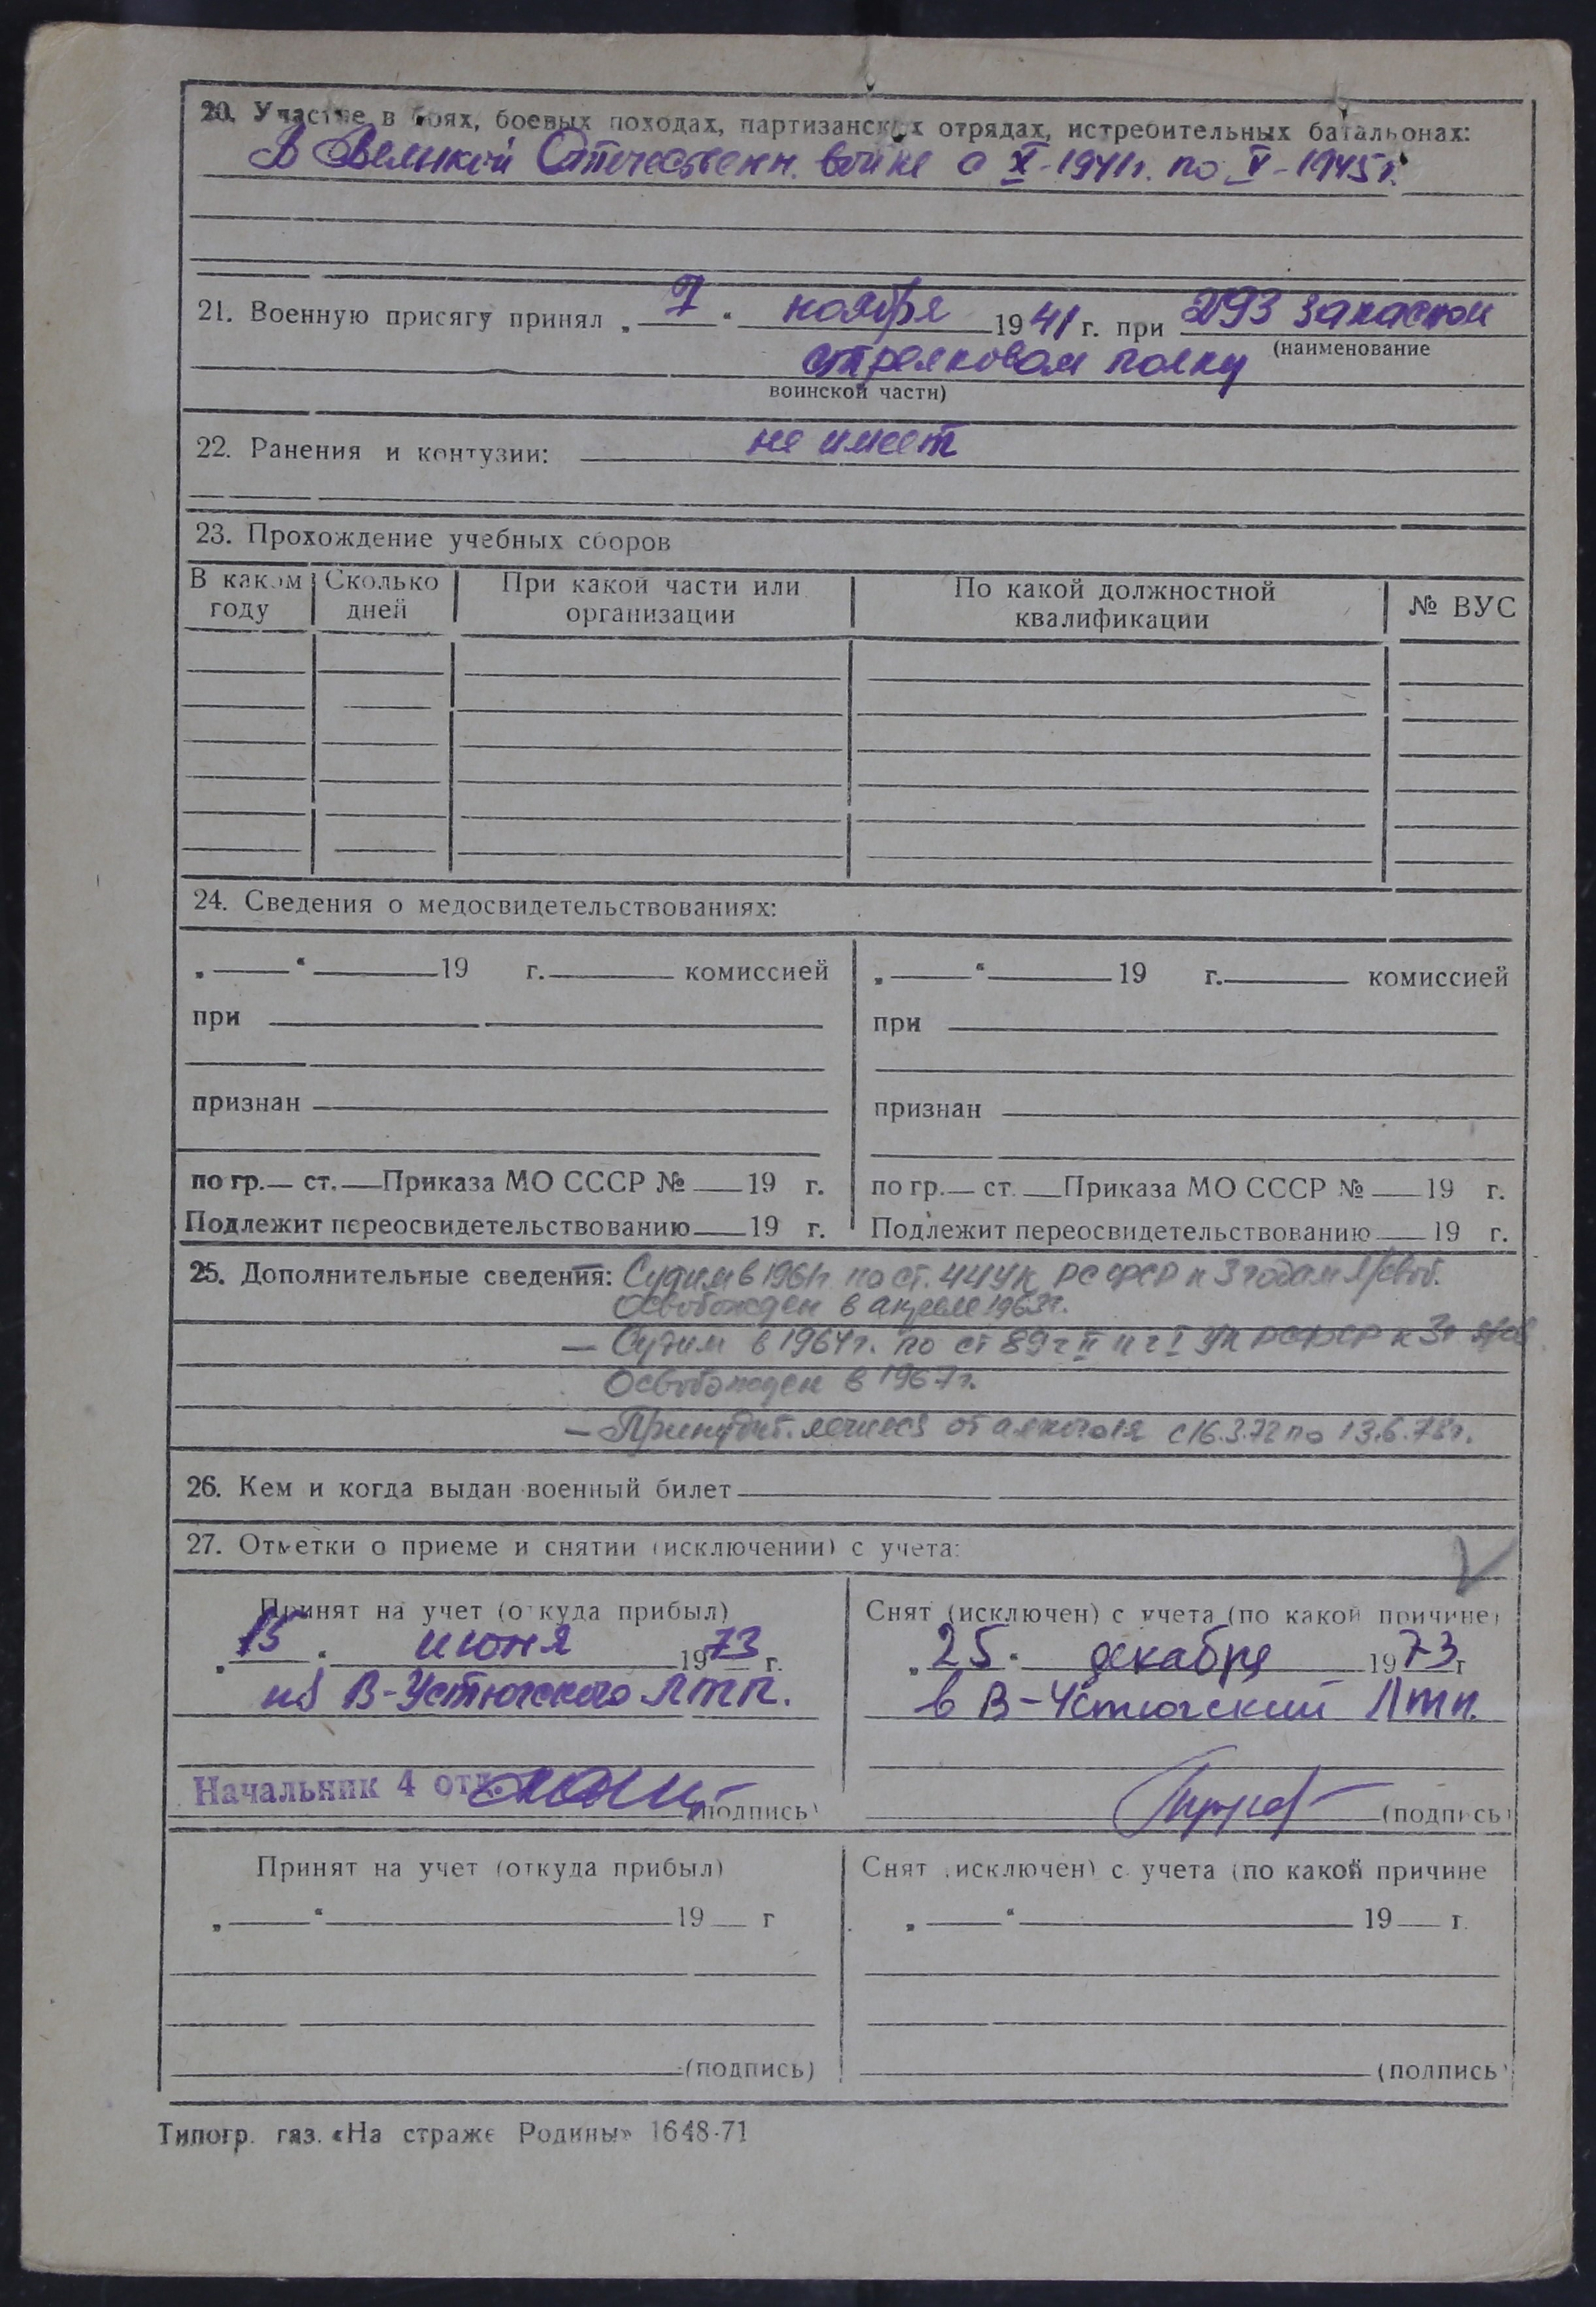 20. Участие в боях, боевых походах, партизанских отрядах, истребительных батальонах:
В Великой Отечественн. войне с X-1941г. по V-1945г.
21. Военную присягу принял „ 7 “ ноября 1941 г. при 293 запасном
(наименование
стрелковом полку
воинской части)
22. Ранения и контузии: не имеет
23. Прохождение учебных сборов
В каком году | Сколько дней | При какой части или организации | По какой должностной квалификации | № ВУС
24. Сведения о медосвидетельствованиях:
„ “ 19 г. комиссией
при
признан
по гр. ст. Приказа МО СССР № 19 г.
Подлежит переосвидетельствованию 19 г.
„ “ 19 г. комиссией
при
признан
по гр. ст. Приказа МО СССР № 19 г.
Подлежит переосвидетельствованию 19 г.
25. Дополнительные сведения: Судим в 1961г по ст. 44 УК РСФСР к 3 годам л/своб.
Освобожден в апреле 1963г.
— Судим в 1964г. по ст 89 ч II и ч I УК РСФСР к 3г л/св
Освобожден в 1967г.
— Принудит. лечился от алкоголя с 16.3.72 по 13.6.73г.
26. Кем и когда выдан военный билет
27. Отметки о приеме и снятии (исключении) с учета:
Принят на учет (откуда прибыл)
„ 15 “ июня 1973 г.
из В-Устюгского ЛТП.
Начальник 4 отд.
(подпись)
Снят (исключен) с учета (по какой причине)
„ 25 “ декабря 1973 г
в В-Устюгский ЛТП.
(подпись)
Принят на учет (откуда прибыл)
„ “ 19 г
(подпись)
Снят (исключен) с учета (по какой причине
„ “ 19 г.
(подпись)
Типогр. газ. «На страже Родины» 1648-71